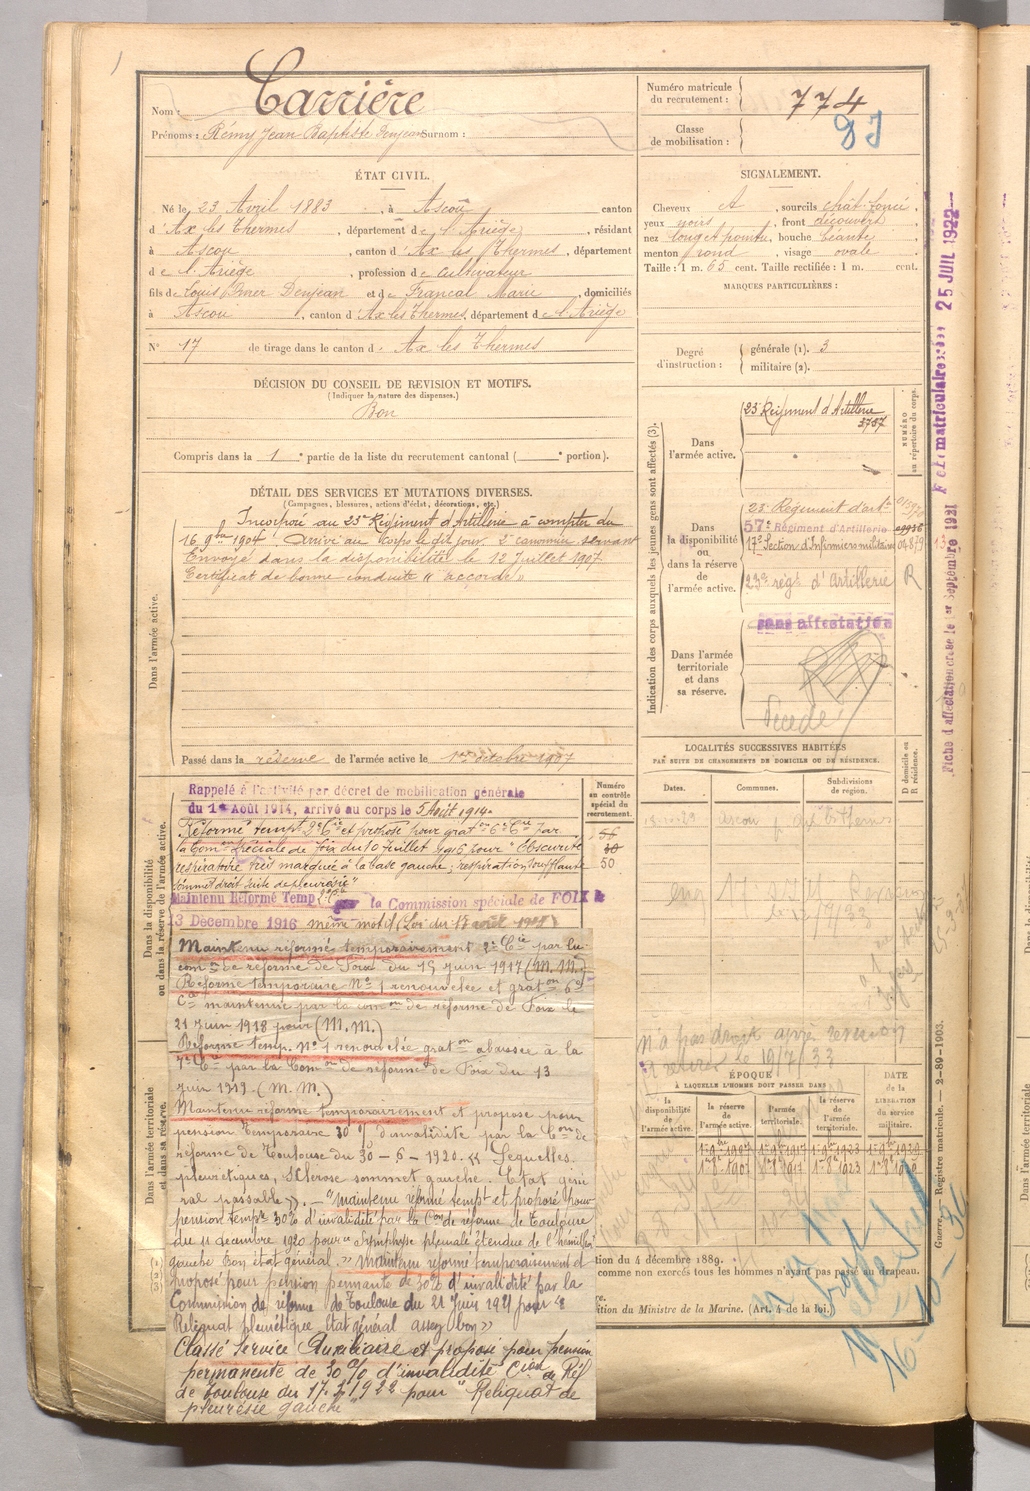 Nom : Carrière
Prénoms : Rémy Jean Baptiste Denjean Surnom :
Numéro matricule du recrutement : 774
Classe de mobilisation :
ÉTAT CIVIL.
Né le 23 Avril 1883, à Ascou canton
d'Ax les Thermes, département de l'Ariège, résidant
à Ascou, canton d'Ax les Thermes, département
de l'Ariège, profession de cultivateur
fils de Louis Omer Denjean et de Francal Marie, domiciliés
à Ascou, canton d'Ax les Thermes, département de l'Ariège
N° 17 de tirage dans le canton d. Ax les Thermes
SIGNALEMENT.
Cheveux , sourcils chât. foncé,
yeux noirs, front découvert
nez long et pointu, bouche béante
menton rond, visage ovale
Taille : 1 m. 65 cent. Taille rectifiée : 1 m. cent.
MARQUES PARTICULIÈRES :
Degré d'instruction : générale (1). 3
militaire (2).
DÉCISION DU CONSEIL DE REVISION ET MOTIFS.
(Indiquer la nature des dispenses.)
Bon
Compris dans la 1e partie de la liste du recrutement cantonal ( e portion).
DÉTAIL DES SERVICES ET MUTATIONS DIVERSES.
(Campagnes, blessures, actions d'éclat, décorations, etc.)
Dans l'armée active.
Incorporé au 23e Régiment d'Artillerie à compter du
16 9bre 1904. Arrivé au corps le dit jour. 2e canonnier servant
Envoyé dans la disponibilité le 12 Juillet 1907
Certificat de bonne conduite "accordé"
Passé dans la réserve de l'armée active le 1er octobre 1907
Indication des corps auxquels les jeunes gens sont affectés (3).
NUMÉRO au répertoire du corps.
Dans l'armée active.
23e Régiment d'Artillerie
3737
Dans la disponibilité ou dans la réserve de l'armée active.
23e Régiment d'art
57e Régiment d'Artillerie
17e Section d'Infirmiers militaires
23e rég. d'Artillerie R
sans affectation
Dans l'armée territoriale et dans sa réserve.
Décédé
Fiche d'affectation créée le 1er Septembre 1921
25 JUIL 1922
LOCALITÉS SUCCESSIVES HABITÉES
PAR SUITE DE CHANGEMENTS DE DOMICILE OU DE RÉSIDENCE.
Dates. Communes. Subdivisions de région. D domicile ou R résidence.
n'a pas droit après revision
le 19/7/33
Dans la disponibilité ou dans la réserve de l'armée active.
Numéro au contrôle spécial du recrutement.
56
50
Rappelé à l'activité par décret de mobilisation générale
du 1er Août 1914, arrivé au corps le 5 Août 1914.
Réformé tempre 2e Cie et proposé pour graton 6e Cie par
la Comon Spéciale de Foix du 10 Juillet 1916 pour "Obscurité
respiratoire très marquée à la base gauche, respiration soufflante
sommet droit suite de pleurésie"
Maintenu Réformé Temp 2e Cie la Commission spéciale de FOIX
13 Décembre 1916 même motif (Loi du 17 août 1915)
Maintenu réformé temporairement 2e Cie par la
comon de réforme de Foix du 15 juin 1917 (M.M.)
Réforme temporaire N° 1 renouvelée et graton 6e
Cie maintenue par la comon de réforme de Foix le
21 Juin 1918 pour (M.M.)
Réforme temp. N° 1 renouvelée graton abaissée à la
7e Cie par la Comon de réforme de Foix du 13
Juin 1919. (M.M.)
Maintenu réformé temporairement et proposé pour
pension temporaire 30 % d'invalidité par la Con de
réforme de Toulouse du 30-6-1920. « Séquelles
pleurétiques, sclérose sommet gauche. État géné
ral passable ». - "Maintenu réformé tempt et proposé pour
pension tempre 30% d'invalidité par la Con de réforme de Toulouse
du 11 décembre 1920 pour « Symphyse pleurale étendue de l'hémithorax
gauche Bon état général. » Maintenu réformé temporairement et
proposé pour pension permante de 30% d'invalidité par la
Commission de réforme de Toulouse du 21 Juin 1921 pour «
Reliquat pleurétique Etat général assez bon »
Classé Service Auxiliaire et proposé pour pension
permanente de 30 % d'invalidité Cion de Réf
de Toulouse du 17.3.1922 pour "Reliquat de
pleurésie gauche"
Dans l'armée territoriale et dans sa réserve.
ÉPOQUE
À LAQUELLE L'HOMME DOIT PASSER DANS
la disponibilité de l'armée active. la réserve de l'armée active. l'armée territoriale. la réserve de l'armée territoriale. DATE de la LIBÉRATION du service militaire.
tion du 4 décembre 1889.
comme non exercés tous les hommes n'ayant pas passé au drapeau.
ition du Ministre de la Marine. (Art. 4 de la loi.)
Guerre. — Registre matricule. — 2-89-1903.